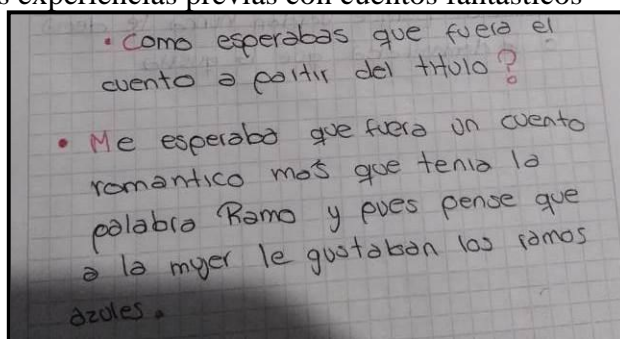 s experiencias previas con cuentos fantásticos
• Como esperabas que fuera el
cuento a partir del titulo?
• Me esperaba que fuera un cuento
romantico mas que tenia la
palabra Ramo y pues pense que
a la mujer le gustaban los ramos
azules.